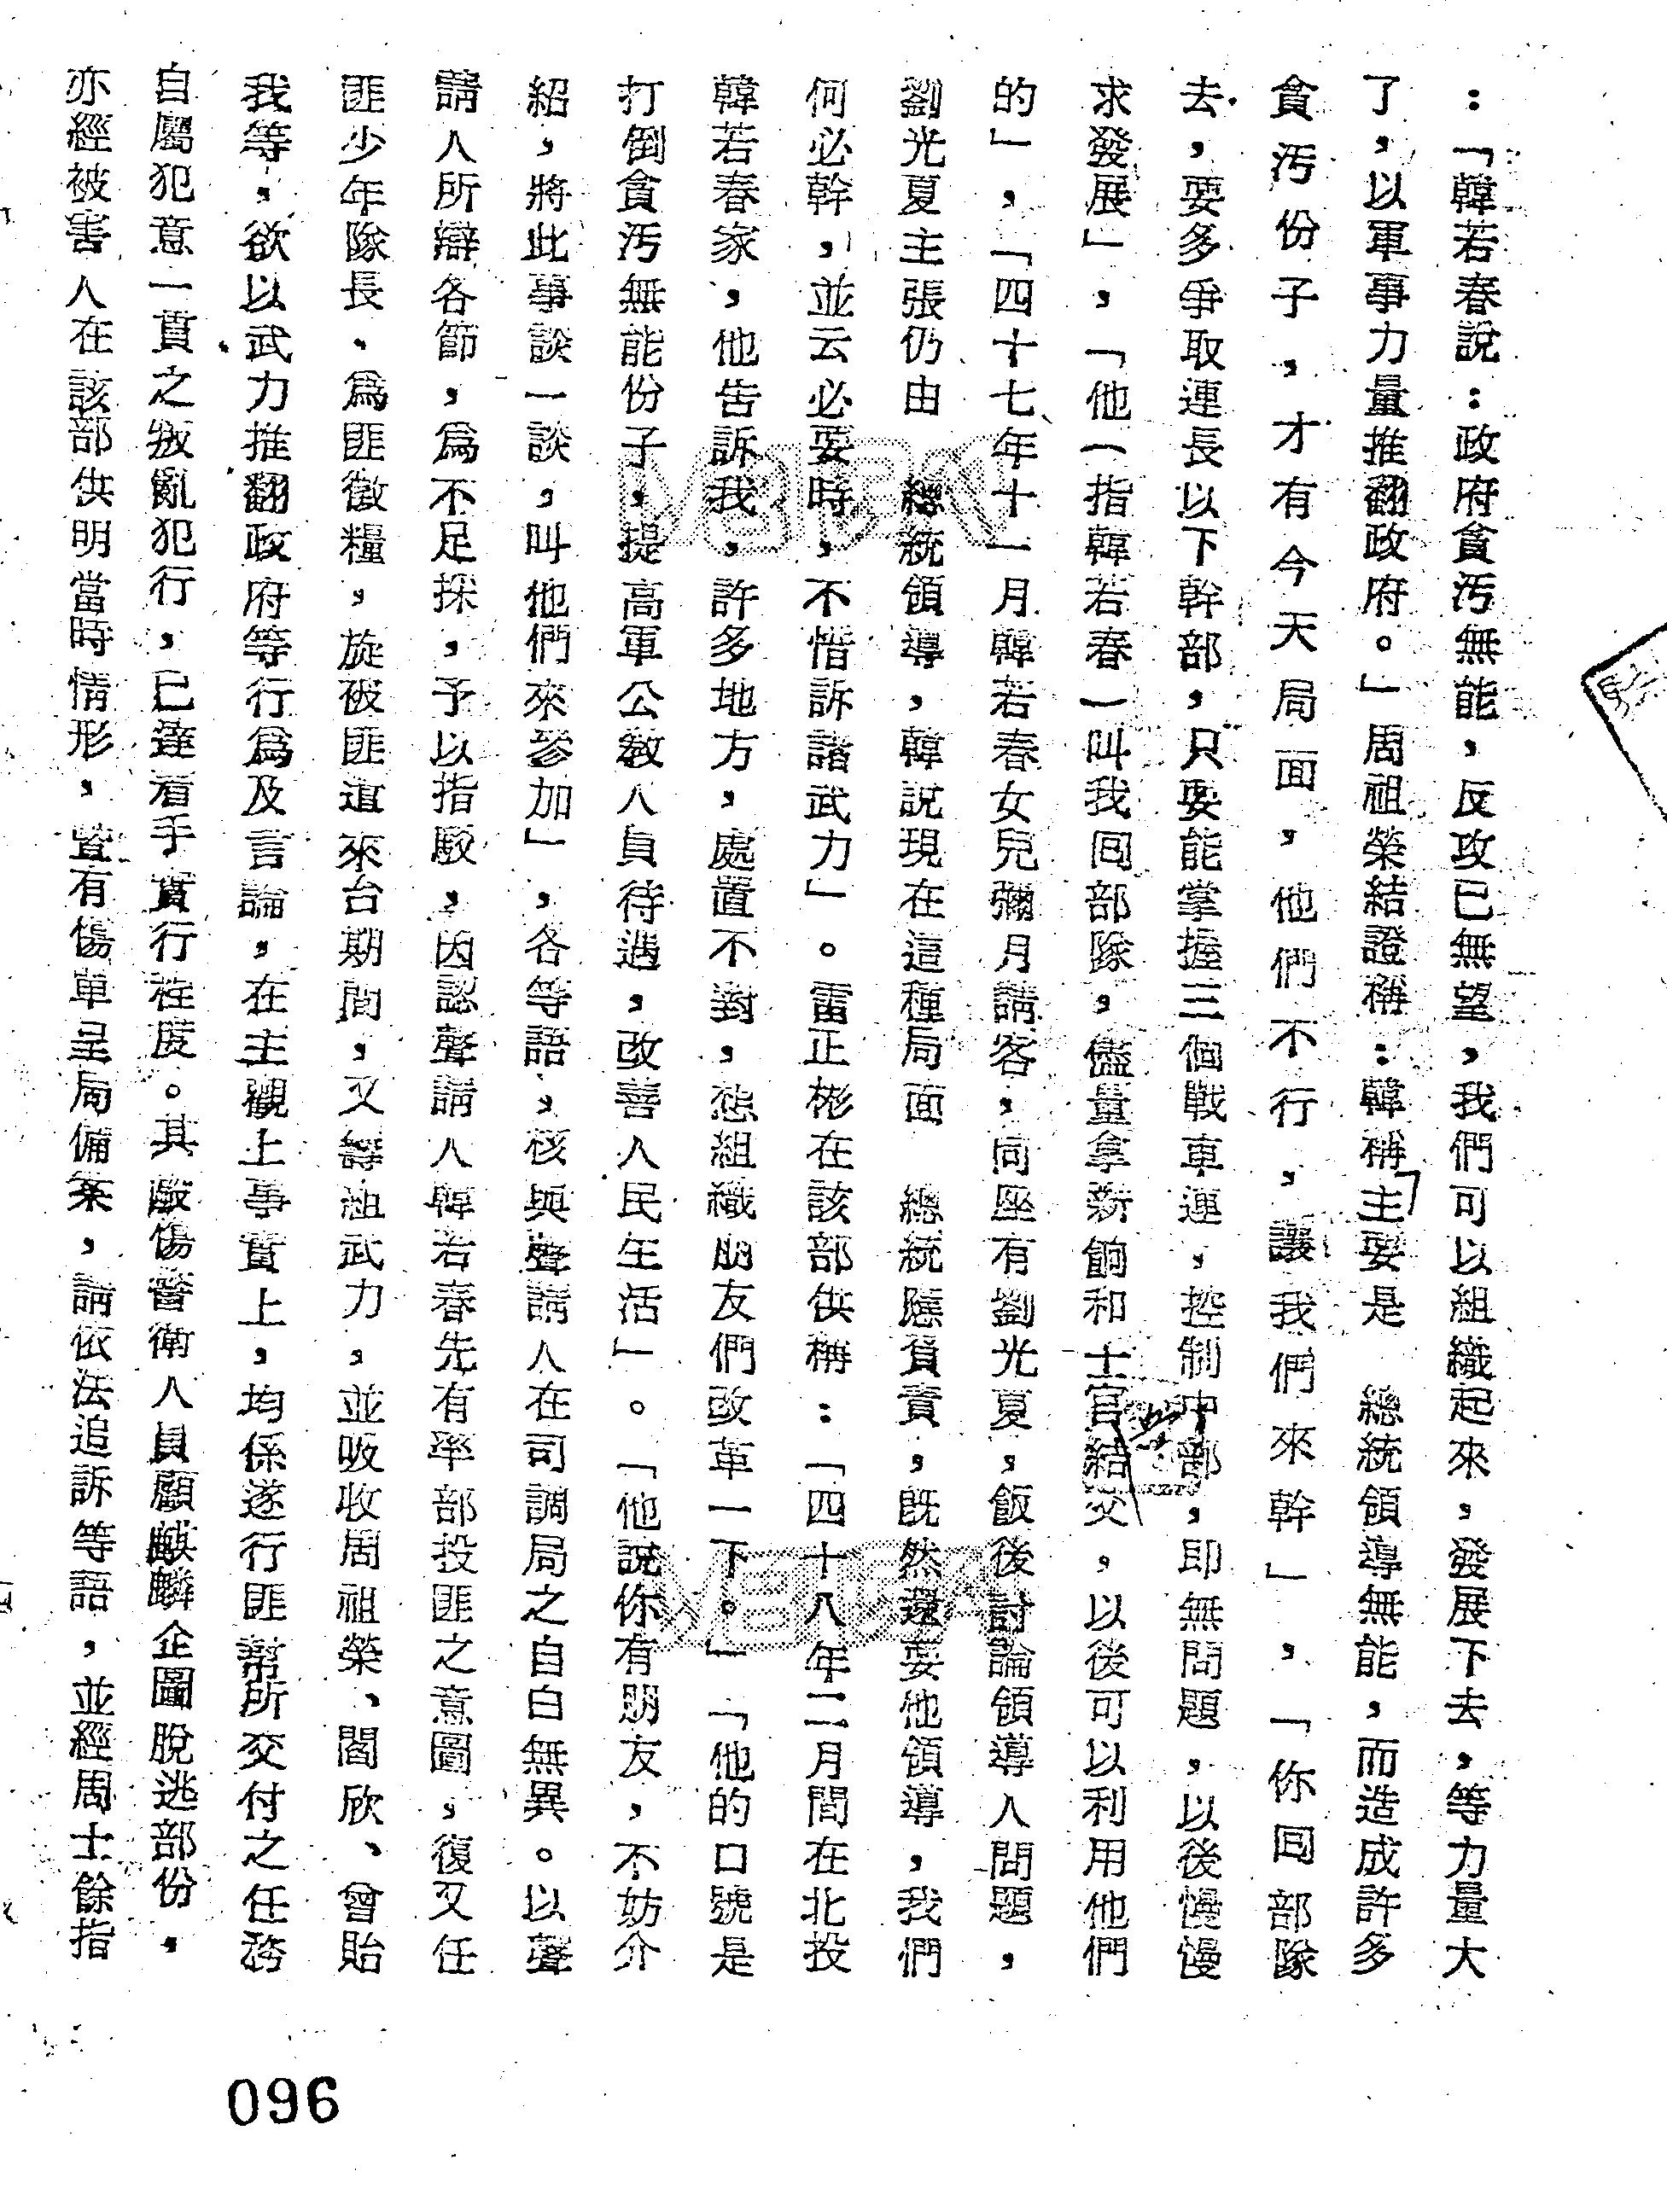 ：「韓若春說：政府貪污無能，反攻已無望，我們可以組織起來，發展下去，等力量大
了，以軍事力量推翻政府。」周祖榮結證稱：韓稱「主要是　總統領導無能，而造成許多
貪污份子，才有今天局面，他們不行，讓我們來幹」，「你囘部隊
去，要多爭取連長以下幹部，只要能掌握三個戰車連，控制中部，即無問題，以後慢慢
求發展」，「他（指韓若春）叫我囘部隊，儘量拿薪餉和士官結交，以後可以利用他們
的」，「四十七年十一月韓若春女兒彌月請客，同座有劉光夏，飯後討論領導人問題，
劉光夏主張仍由　總統領導，韓說現在這種局面　總統應負責，既然還要他領導，我們
何必幹，並云必要時，不惜訴諸武力」。雷正彬在該部供稱：「四十八年二月間在北投
韓若春家，他告訴我，許多地方，處置不對，想組織朋友們改革一下。」「他的口號是
打倒貪污無能份子，提高軍公教人員待遇，改善人民生活」。「他說你有朋友，不妨介
紹，將此事談一談，叫他們來參加」，各等語，核與聲請人在司調局之自白無異。以聲
請人所辯各節，爲不足採，予以指駁，因認聲請人韓若春先有率部投匪之意圖，復又任
匪少年隊長、爲匪徵糧，旋被匪逼來台期間，又籌組武力，並吸收周祖榮、閻欣、曾貽
我等，欲以武力推翻政府等行爲及言論，在主觀上事實上，均係遂行匪幫所交付之任務
自屬犯意一貫之叛亂犯行，已達着手實行程度。其毆傷警衛人員顧麒麟企圖脫逃部份，
亦經被害人在該部供明當時情形，暨有傷單呈局備案，請依法追訴等語，並經周士餘指
096